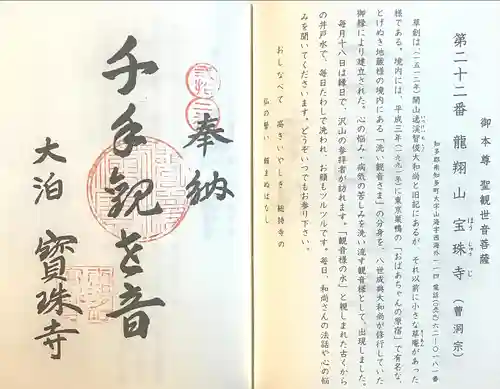 御本尊 聖観世音菩薩
第二十二番 龍翔山 宝珠寺（曹洞宗）
ほう しゅ じ
知多郡南知多町大字山海字西海外一一四 電話（〇六九）六二―〇一八一番
草創は、（一五一二年）開山逸渓智俊大和尚と旧記にあるが、それ以前に小さな草庵があった
様である。境内には、平成三年（一九九一年）に東京巣鴨の「おばあちゃんの原宿」で有名な、
とげぬき地蔵様の境内にある「洗い観音さま」の分身を、八世成典大和尚が修行していた
御縁により建立された。心の悩み・病気の苦しみを洗い流す観音様として、出現しました。
毎月十八日は縁日で、沢山の参拝者が訪れます。「観音様の水」と親しまれた古くから
の井戸水で、毎日たわしで洗われ、お顔もツルツルです。毎日、和尚さんの法話や心の悩
みを聞いてくださいます。どうぞいつでもお参り下さい。
おしなべて 高きいやしき 総持寺の
仏の誓い 頼まぬはなし
奉納
千手観世音
大泊 寳珠寺